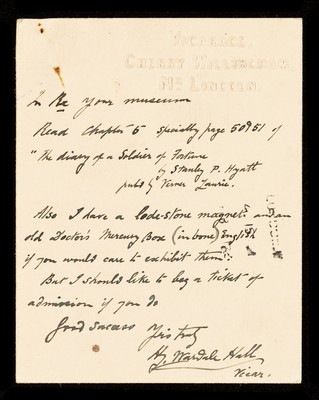 VICARAGE,
CHERRY WILLINGHAM
Nr LINCOLN.
In Re your museum
Read Chapter 5 specially page 50 & 51 of
"The diary of a Soldier of Fortune
by Stanley P. Hyatt
pubd by Werner Laurie.
Also I have a lode-stone magnet and an
old Doctor's Mercury Box (in bone) English
if you would care to exhibit them?
But I should like to beg a ticket of
admission if you do
Good success Yrs truly
Hy. Wardale Hall
Vicar.